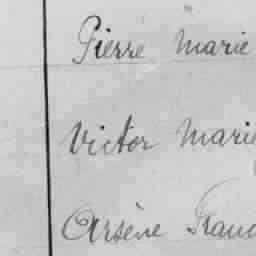 Pierre Marie
Victor Marie
Arsène